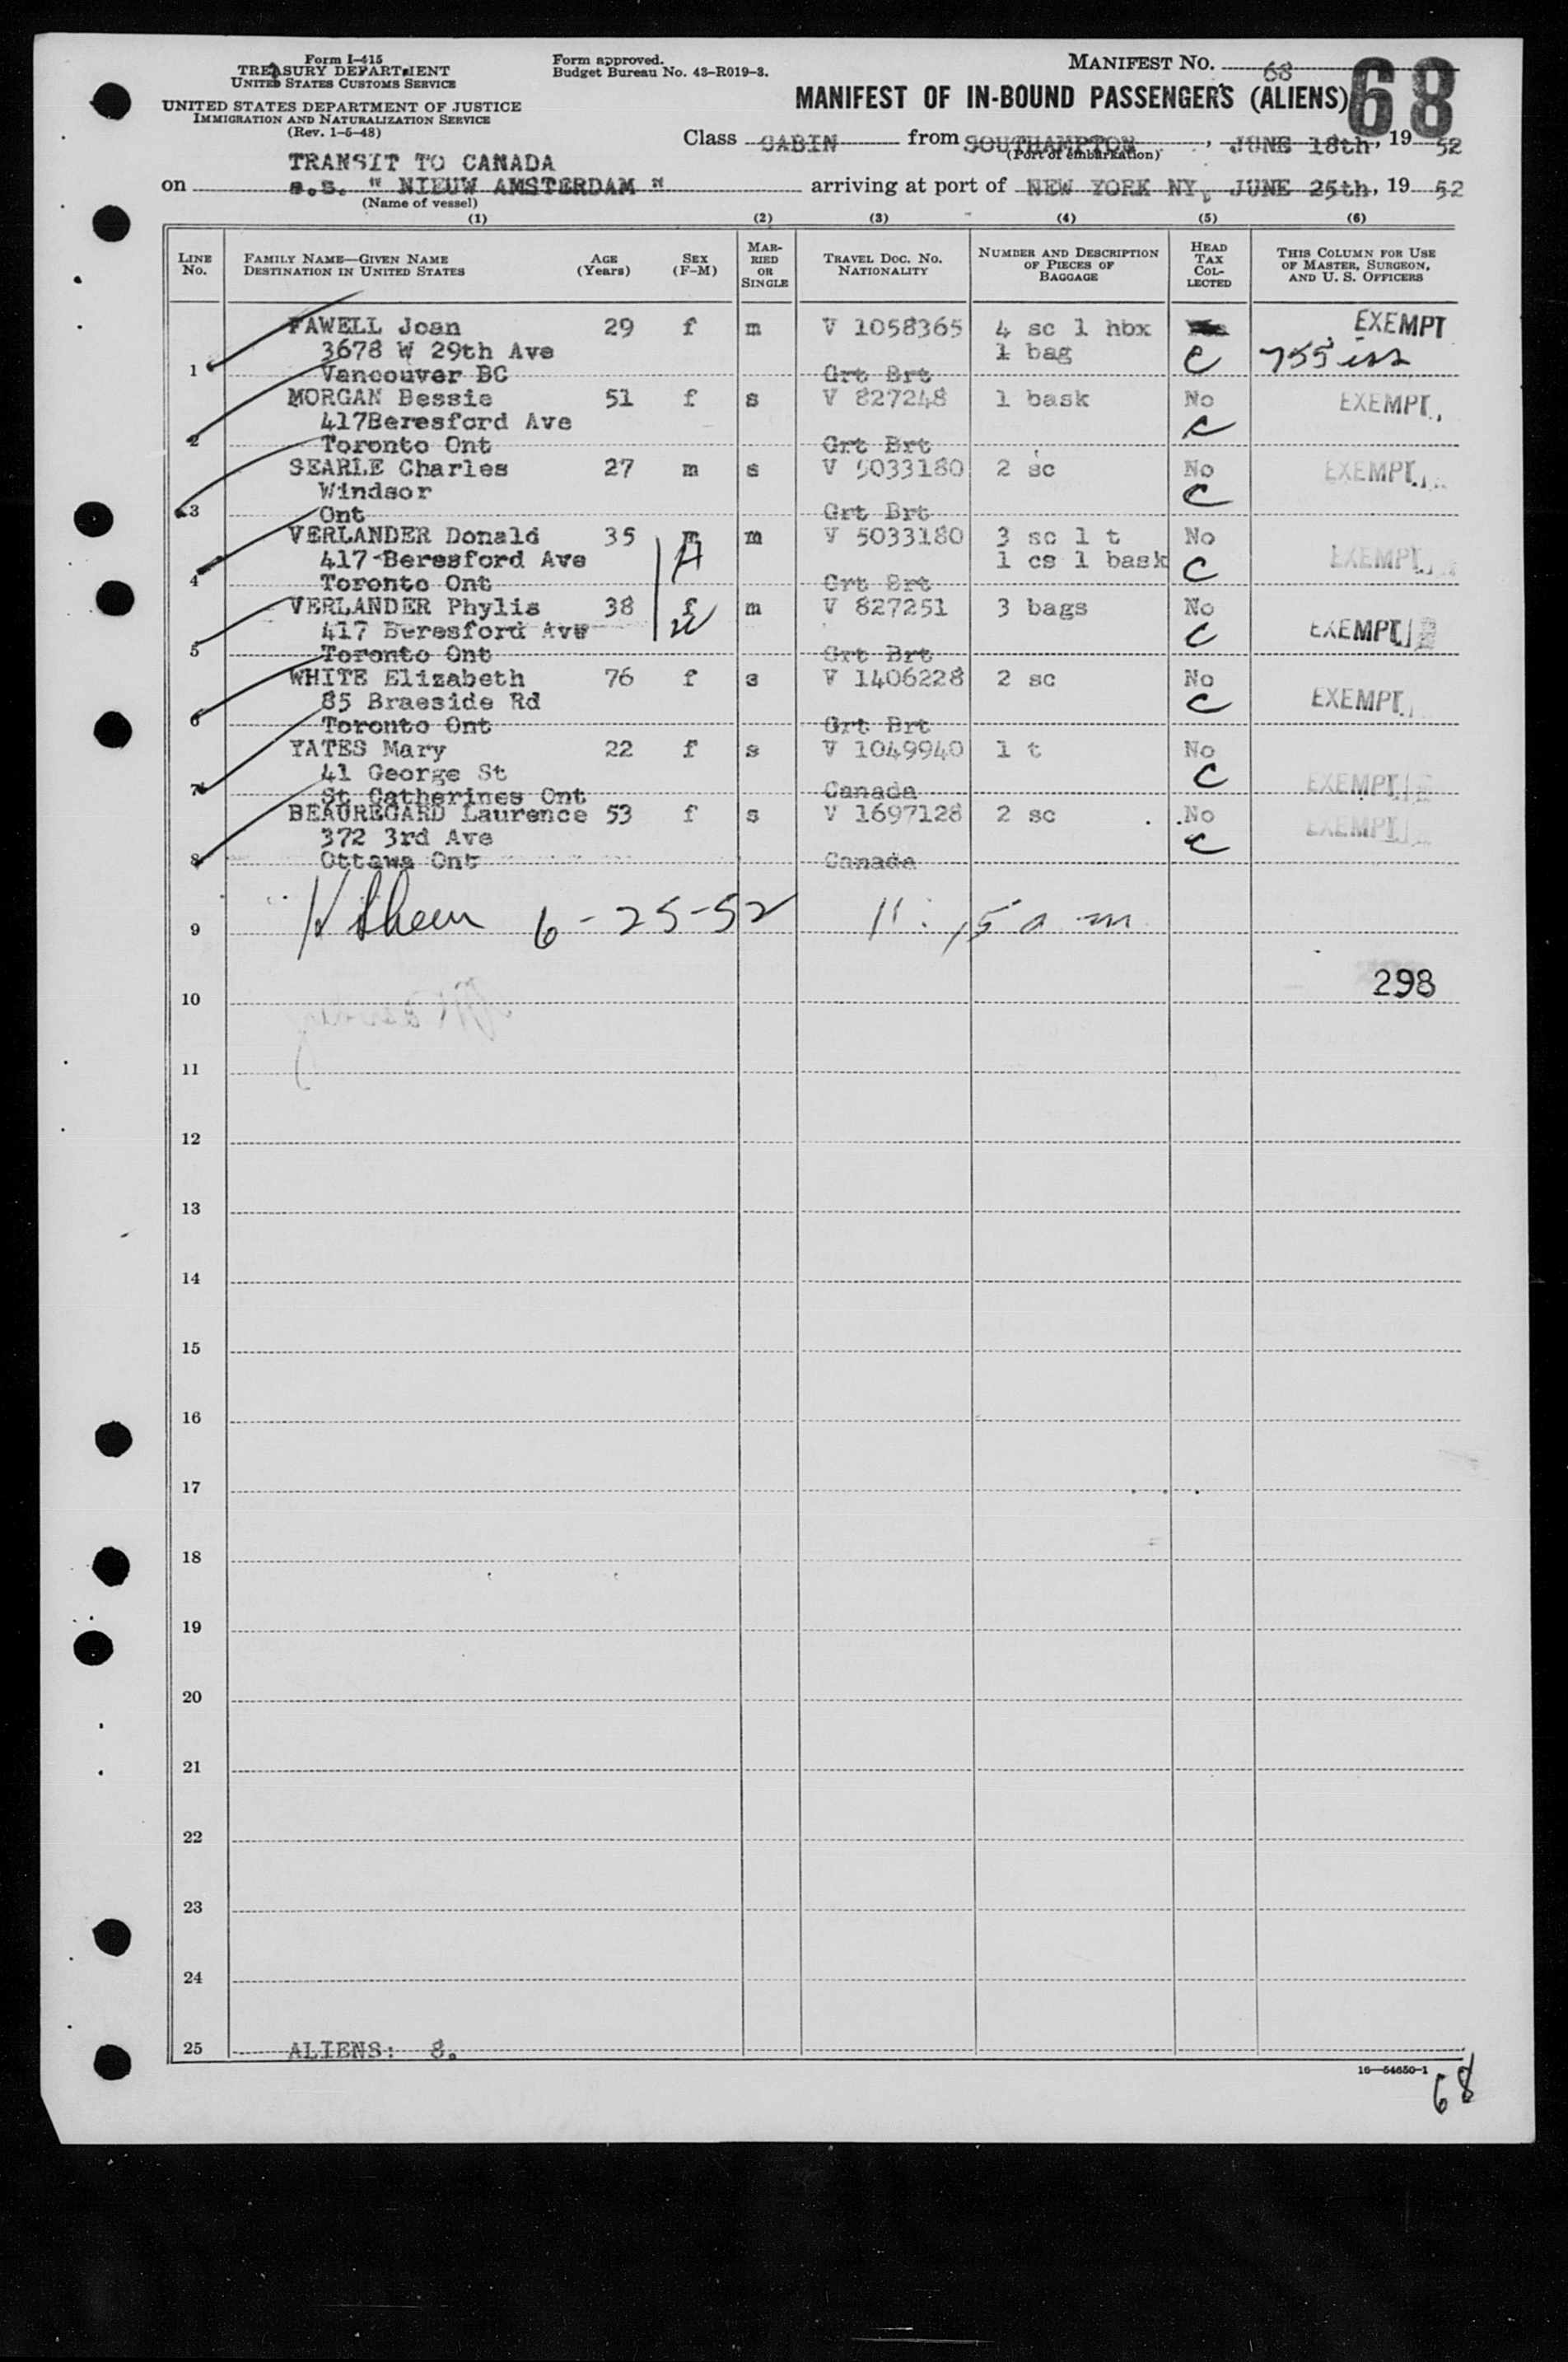 Form I-415
TREASURY DEPARTMENT
UNITED STATES CUSTOMS SERVICE
UNITED STATES DEPARTMENT OF JUSTICE
IMMIGRATION AND NATURALIZATION SERVICE
(Rev. 1-5-48)
Form approved.
Budget Bureau No. 43-R019-3.
MANIFEST NO. 68
68
MANIFEST OF IN-BOUND PASSENGERS (ALIENS)
Class CABIN from SOUTHAMPTON, JUNE 18th, 1952
(Port of embarkation)
TRANSIT TO CANADA
on s.s. " NIEUW AMSTERDAM " arriving at port of NEW YORK NY, JUNE 25th, 1952
(Name of vessel)
(1) (2) (3) (4) (5) (6)
LINE No. FAMILY NAME—GIVEN NAME DESTINATION IN UNITED STATES AGE (Years) SEX (F-M) MARRIED OR SINGLE TRAVEL DOC. NO. NATIONALITY NUMBER AND DESCRIPTION OF PIECES OF BAGGAGE HEAD TAX COLLECTED THIS COLUMN FOR USE OF MASTER, SURGEON, AND U. S. OFFICERS
FAWELL Joan 29 f m V 1058365 4 sc 1 hbx EXEMPT
3678 W 29th Ave 1 bag C 755 iss
1 Vancouver BC Grt Brt
MORGAN Bessie 51 f s V 827248 1 bask No EXEMPT
417Beresford Ave C
2 Toronto Ont Grt Brt
SEARLE Charles 27 m s V 5033180 2 sc No EXEMPT
Windsor C
3 Ont Grt Brt
VERLANDER Donald 35 m m V 5033180 3 sc 1 t No
417 Beresford Ave H 1 cs 1 bask C EXEMPT
4 Toronto Ont Grt Brt
VERLANDER Phylis 38 f m V 827251 3 bags No
417 Beresford Ave W C EXEMPT
5 Toronto Ont Grt Brt
WHITE Elizabeth 76 f s V 1406228 2 sc No
85 Braeside Rd C EXEMPT
6 Toronto Ont Grt Brt
YATES Mary 22 f s V 1049940 1 t No
41 George St C EXEMPT
7 St Catherines Ont Canada
BEAUREGARD Laurence 53 f s V 1697128 2 sc No EXEMPT
372 3rd Ave C
8 Ottawa Ont Canada
9 6-25-52 11:15 a m
298
10
11
12
13
14
15
16
17
18
19
20
21
22
23
24
25 ALIENS: 8.
16—54650-1
68